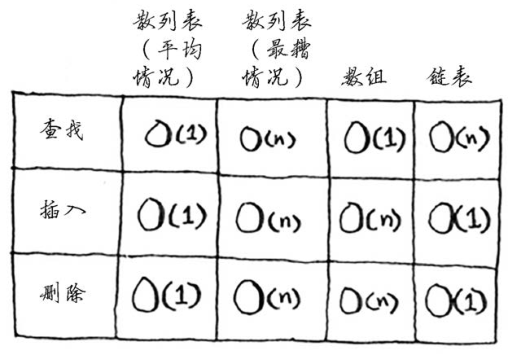 散列表
（平均
情况）
散列表
（最糟
情况）
数组
链表
查找 O(1) O(n) O(1) O(n)
插入 O(1) O(n) O(n) O(1)
删除 O(1) O(n) O(n) O(1)